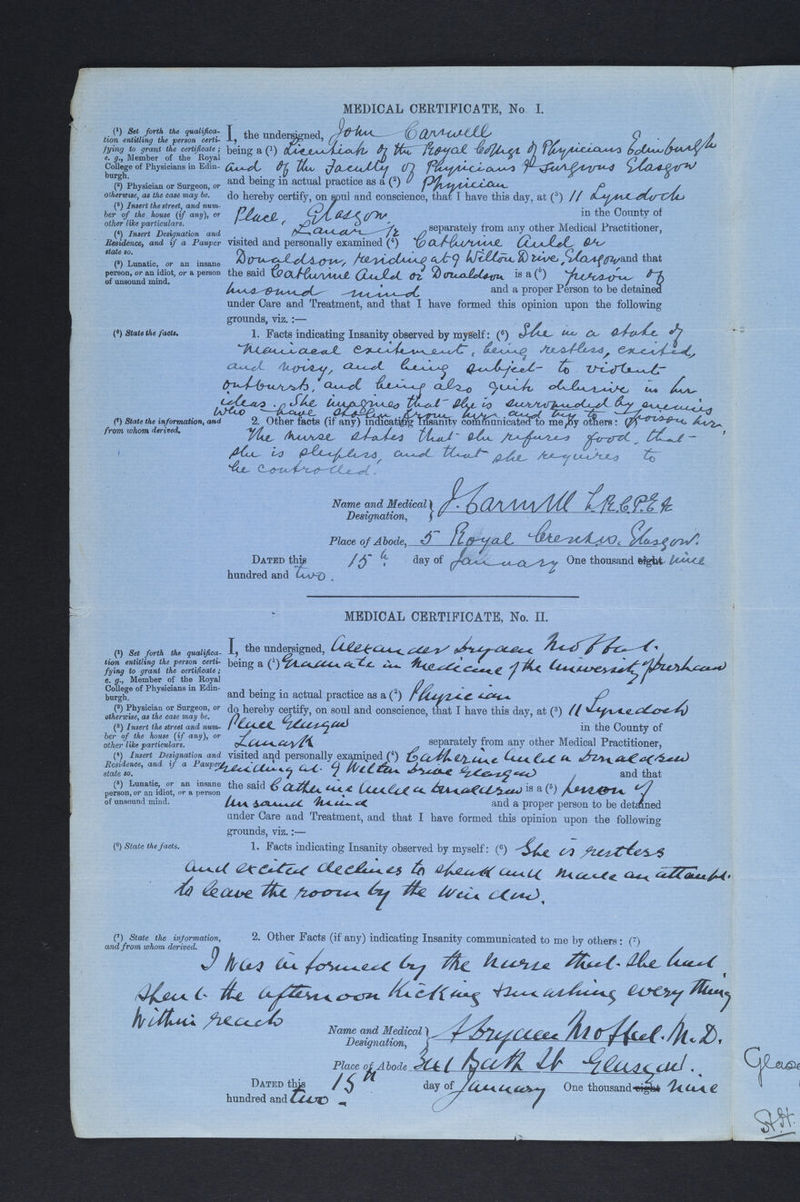 MEDICAL CERTIFICATE, No. I.
(1) Set forth the qualifica-
tion entitling the person certi-
fying to grant the certificate;
e. g., Member of the Royal
College of Physicians in Edin-
burgh.
(2) Physician or Surgeon, or
otherwise, as the case may be.
(3) Insert the street, and num-
ber of the house (if any), or
other like particulars.
(4) Insert Designation and
Residence, and if a Pauper
state so.
(5) Lunatic, or an insane
person, or an idiot, or a person
of unsound mind.
I, the undersigned, John Carswell
being a (1) Licentiate of the Royal College of Physicians Edinburgh
and of the Faculty of Physicians & Surgeons Glasgow
and being in actual practice as a (2) Physician
do hereby certify, on soul and conscience, that I have this day, at (3) 11 Lynedoch
Place, Glasgow, in the County of
Lanark separately from any other Medical Practitioner,
visited and personally examined (4) Catherine Auld or
Donaldson, residing at 9 Wilton Drive, Glasgow and that
the said Catherine Auld or Donaldson is a (5) person of
unsound mind and a proper Person to be detained
under Care and Treatment, and that I have formed this opinion upon the following
grounds, viz. :—
(6) State the facts.
1. Facts indicating Insanity observed by myself: (6) She in a state of
maniacal excitement, being restless, excited,
and noisy, and being subject to violent
outbursts, and being also quite delusive in her
ideas. She imagines that she is surrounded by enemies
who have stolen from her and try to poison her.
(7) State the information, and
from whom derived.
2. Other facts (if any) indicating Insanity communicated to me by others: (7)
The nurse states that she refuses food, that
she is sleepless, and that she requires to
be controlled.
Name and Medical
Designation, J. Carswell L.R.C.P.E &c
Place of Abode, 5 Royal Crescent W. Glasgow.
DATED this 15th day of January One thousand eight nine
hundred and two.
MEDICAL CERTIFICATE, No. II.
(1) Set forth the qualifica-
tion entitling the person certi-
fying to grant the certificate;
e. g., Member of the Royal
College of Physicians in Edin-
burgh.
(2) Physician or Surgeon, or
otherwise, as the case may be.
(3) Insert the street and num-
ber of the house (if any), or
other like particulars.
(4) Insert Designation and
Residence, and if a Pauper
state so.
(5) Lunatic, or an insane
person, or an idiot, or a person
of unsound mind.
I, the undersigned, Alexander Dryden Moffat.
being a (1) Graduate in Medicine of the University of Durham
and being in actual practice as a (2) Physician
do hereby certify, on soul and conscience, that I have this day, at (3) 11 Lynedoch
Place Glasgow in the County of
Lanark separately from any other Medical Practitioner,
visited and personally examined (4) Catherine Auld or Donaldson
residing at 9 Wilton Drive Glasgow and that
the said Catherine Auld or Donaldson is a (5) person of
unsound mind and a proper person to be detained
under Care and Treatment, and that I have formed this opinion upon the following
grounds, viz. :—
(6) State the facts.
1. Facts indicating Insanity observed by myself: (6) She is restless
and excited declines to speak and made an attempt
to leave the room by the window.
(7) State the information,
and from whom derived.
2. Other Facts (if any) indicating Insanity communicated to me by others: (7)
I was informed by the nurse that she had
spent the afternoon kicking & smashing every thing
within reach
Name and Medical
Designation, A Dryden Moffat. M.D.
Place of Abode Bath St Glasgow.
DATED this 15th day of January One thousand eight nine
hundred and two